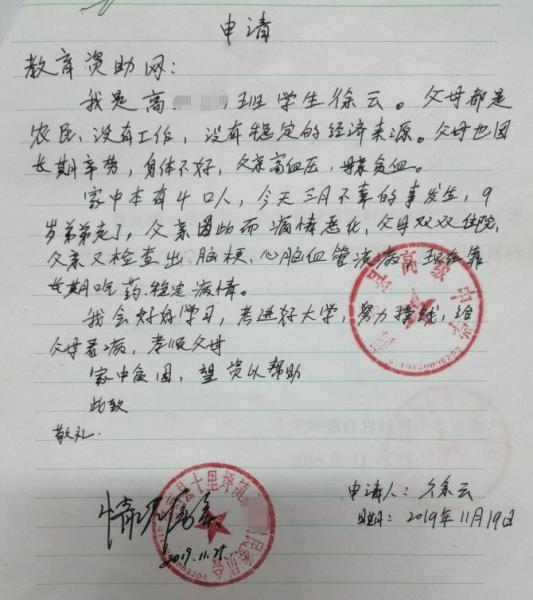 申请
教育资助网：
我是高 班学生徐云。父母都是
农民，没有工作，没有稳定的经济来源。父母也因
长期辛劳，身体不好，父亲高血压，母亲贫血。
家中本有4口人，今天三月不幸的事发生，9
岁弟弟走了，父亲因此而病情恶化，父母双双住院，
父亲又检查出脑梗、心脑血管 病，现在靠
长期吃药稳定病情。
我会好好学习，考进好大学，努力挣钱，给
父母看病，孝顺父母
家中贫困，望资以帮助
此致
敬礼
县高级中学
县十里坪镇
情况属实
2019.11.25
申请人：徐云
日期：2019年11月19日